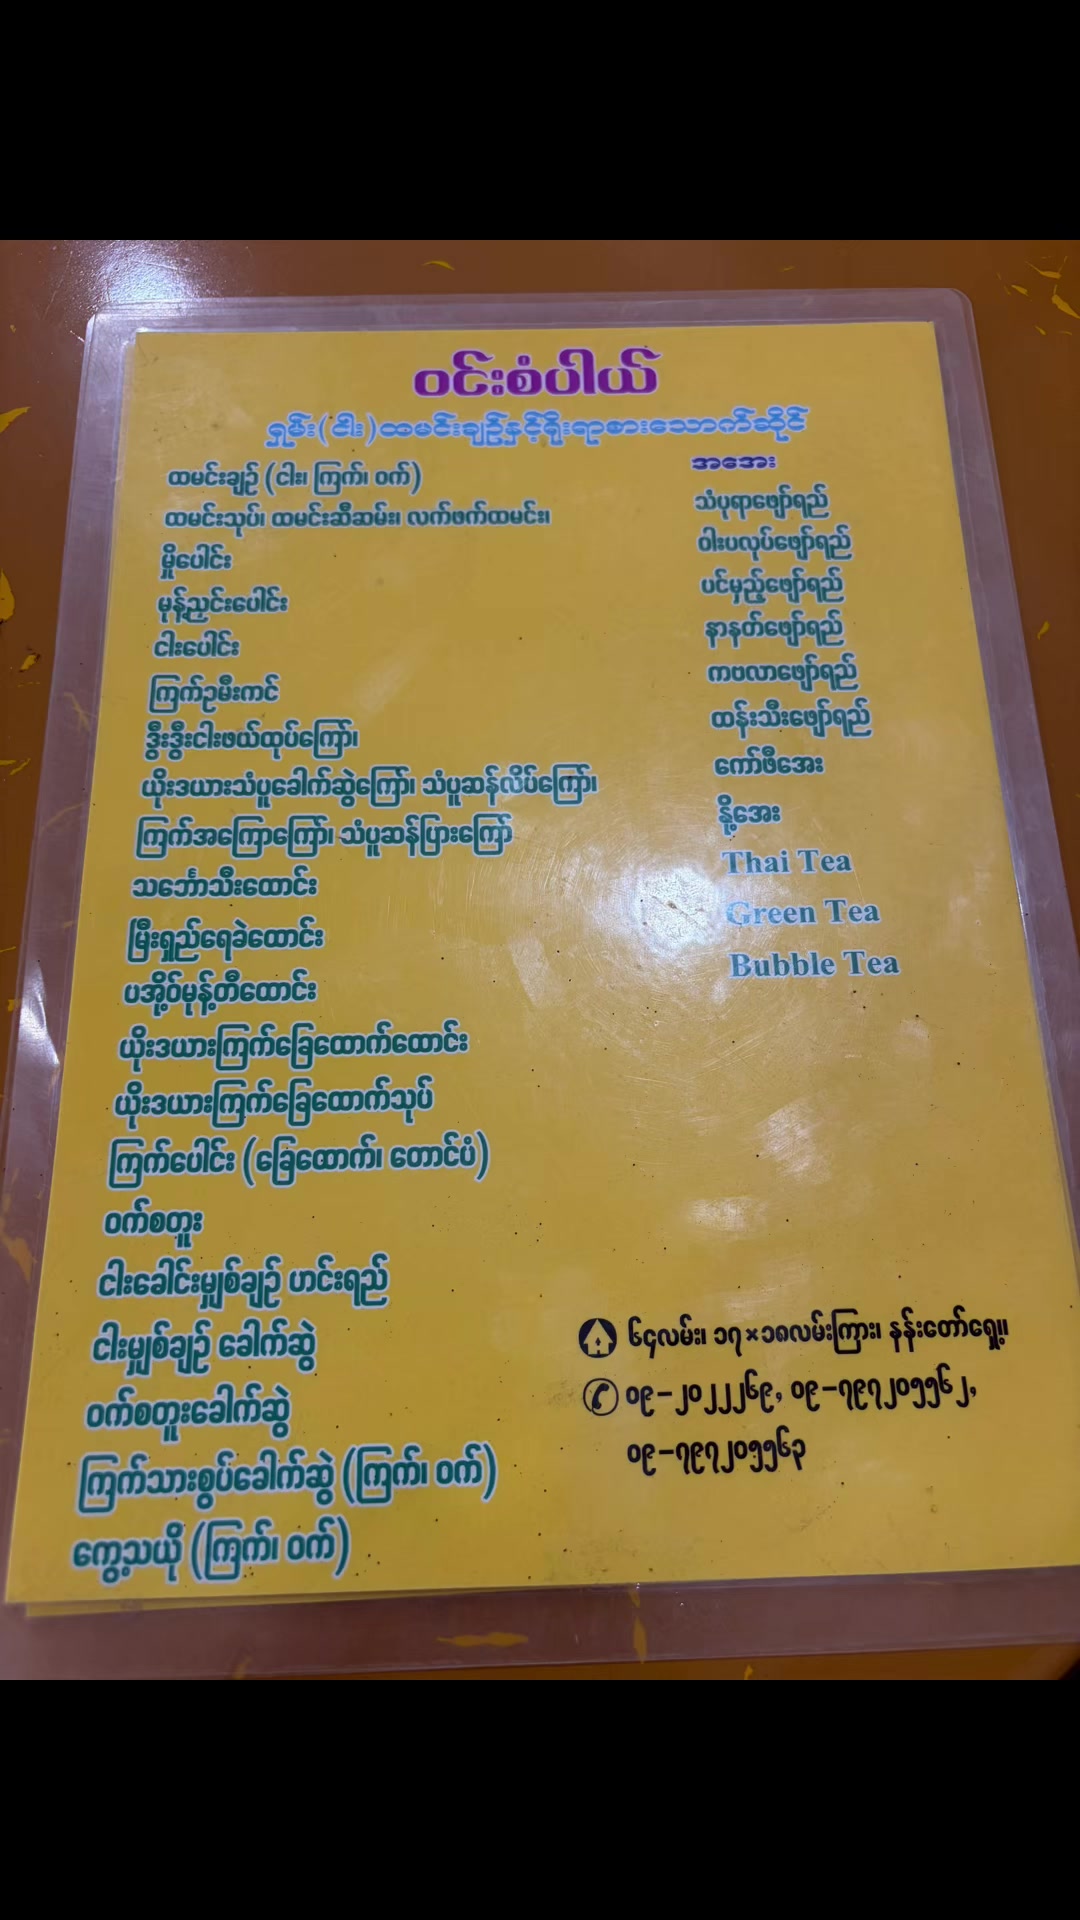 ဝင်းစံပါယ်
ရှမ်း(ငါး)ထမင်းချဉ်နှင့်ရိုးရာစားသောက်ဆိုင်
ထမင်းချဉ် (ငါး၊ ကြက်၊ ဝက်)
ထမင်းသုပ်၊ ထမင်းဆီဆမ်း၊ လက်ဖက်ထမင်း၊
မှိုပေါင်း
မုန့်ညှင်းပေါင်း
ငါးပေါင်း
ကြက်ဥမီးကင်
ဒွီးဒွီးငါးဖယ်ထုပ်ကြော်၊
ယိုးဒယားသံပူခေါက်ဆွဲကြော်၊ သံပူဆန်လိပ်ကြော်၊
ကြက်အကြောကြော်၊ သံပူဆန်ပြားကြော်
သင်္ဘောသီးထောင်း
မြီးရှည်ရေခဲထောင်း
ပအို့ဝ်မုန့်တီထောင်း
ယိုးဒယားကြက်ခြေထောက်ထောင်း
ယိုးဒယားကြက်ခြေထောက်သုပ်
ကြက်ပေါင်း (ခြေထောက်၊ တောင်ပံ)
ဝက်စတူး
ငါးခေါင်းမျှစ်ချဉ် ဟင်းရည်
ငါးမျှစ်ချဉ် ခေါက်ဆွဲ
ဝက်စတူးခေါက်ဆွဲ
ကြက်သားစွပ်ခေါက်ဆွဲ (ကြက်၊ ဝက်)
ကွေ့သယို (ကြက်၊ ဝက်)
အအေး
သံပုရာဖျော်ရည်
ဝါးပလုပ်ဖျော်ရည်
ပင်မှည့်ဖျော်ရည်
နာနတ်ဖျော်ရည်
ကဗလာဖျော်ရည်
ထန်းသီးဖျော်ရည်
ကော်ဖီအေး
နို့အေး
Thai Tea
Green Tea
Bubble Tea
၆၄လမ်း၊ ၁၇×၁၈လမ်းကြား၊ နန်းတော်ရှေ့။
၀၉-၂၀၂၂၂၆၉, ၀၉-၇၉၇၂၀၅၅၆၂,
၀၉-၇၉၇၂၀၅၅၆၃